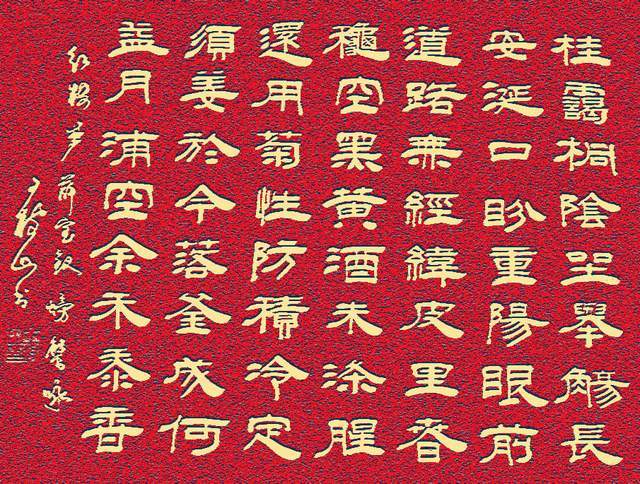 桂靄桐陰坐舉觴長
安涎口盼重陽眼前
道路無經緯皮里春
龝空黑黃酒未涤腥
還用菊性防積冷定
須姜於今落釜成何
益月浦空余禾黍香
红楼梦薛宝钗螃蟹咏